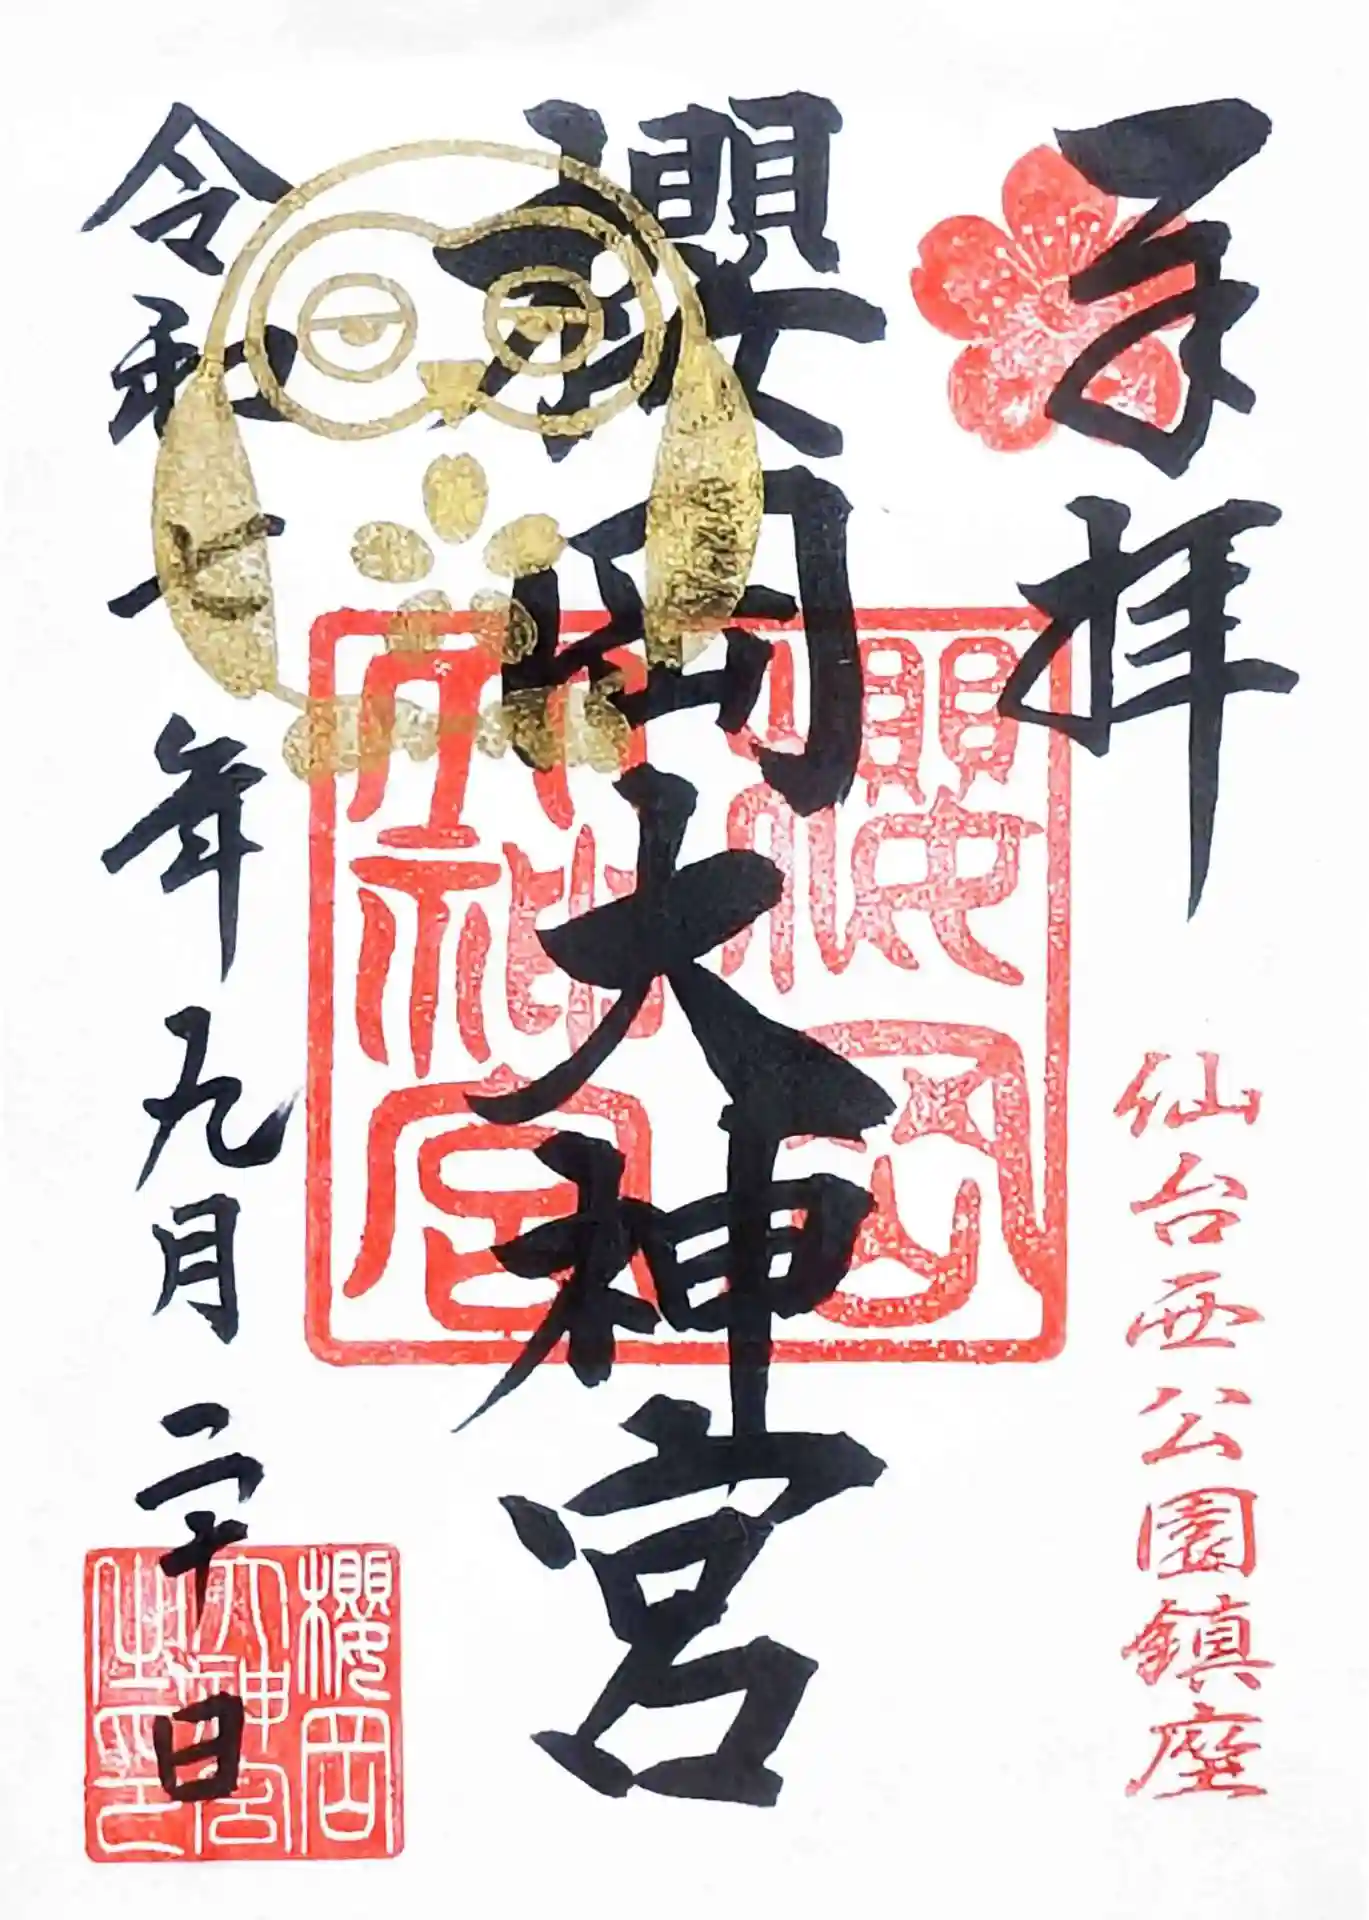 奉拝
仙台西公園鎮座
櫻岡大神宮
櫻岡
大神宮
令和 年九月二十日
櫻岡
大神宮